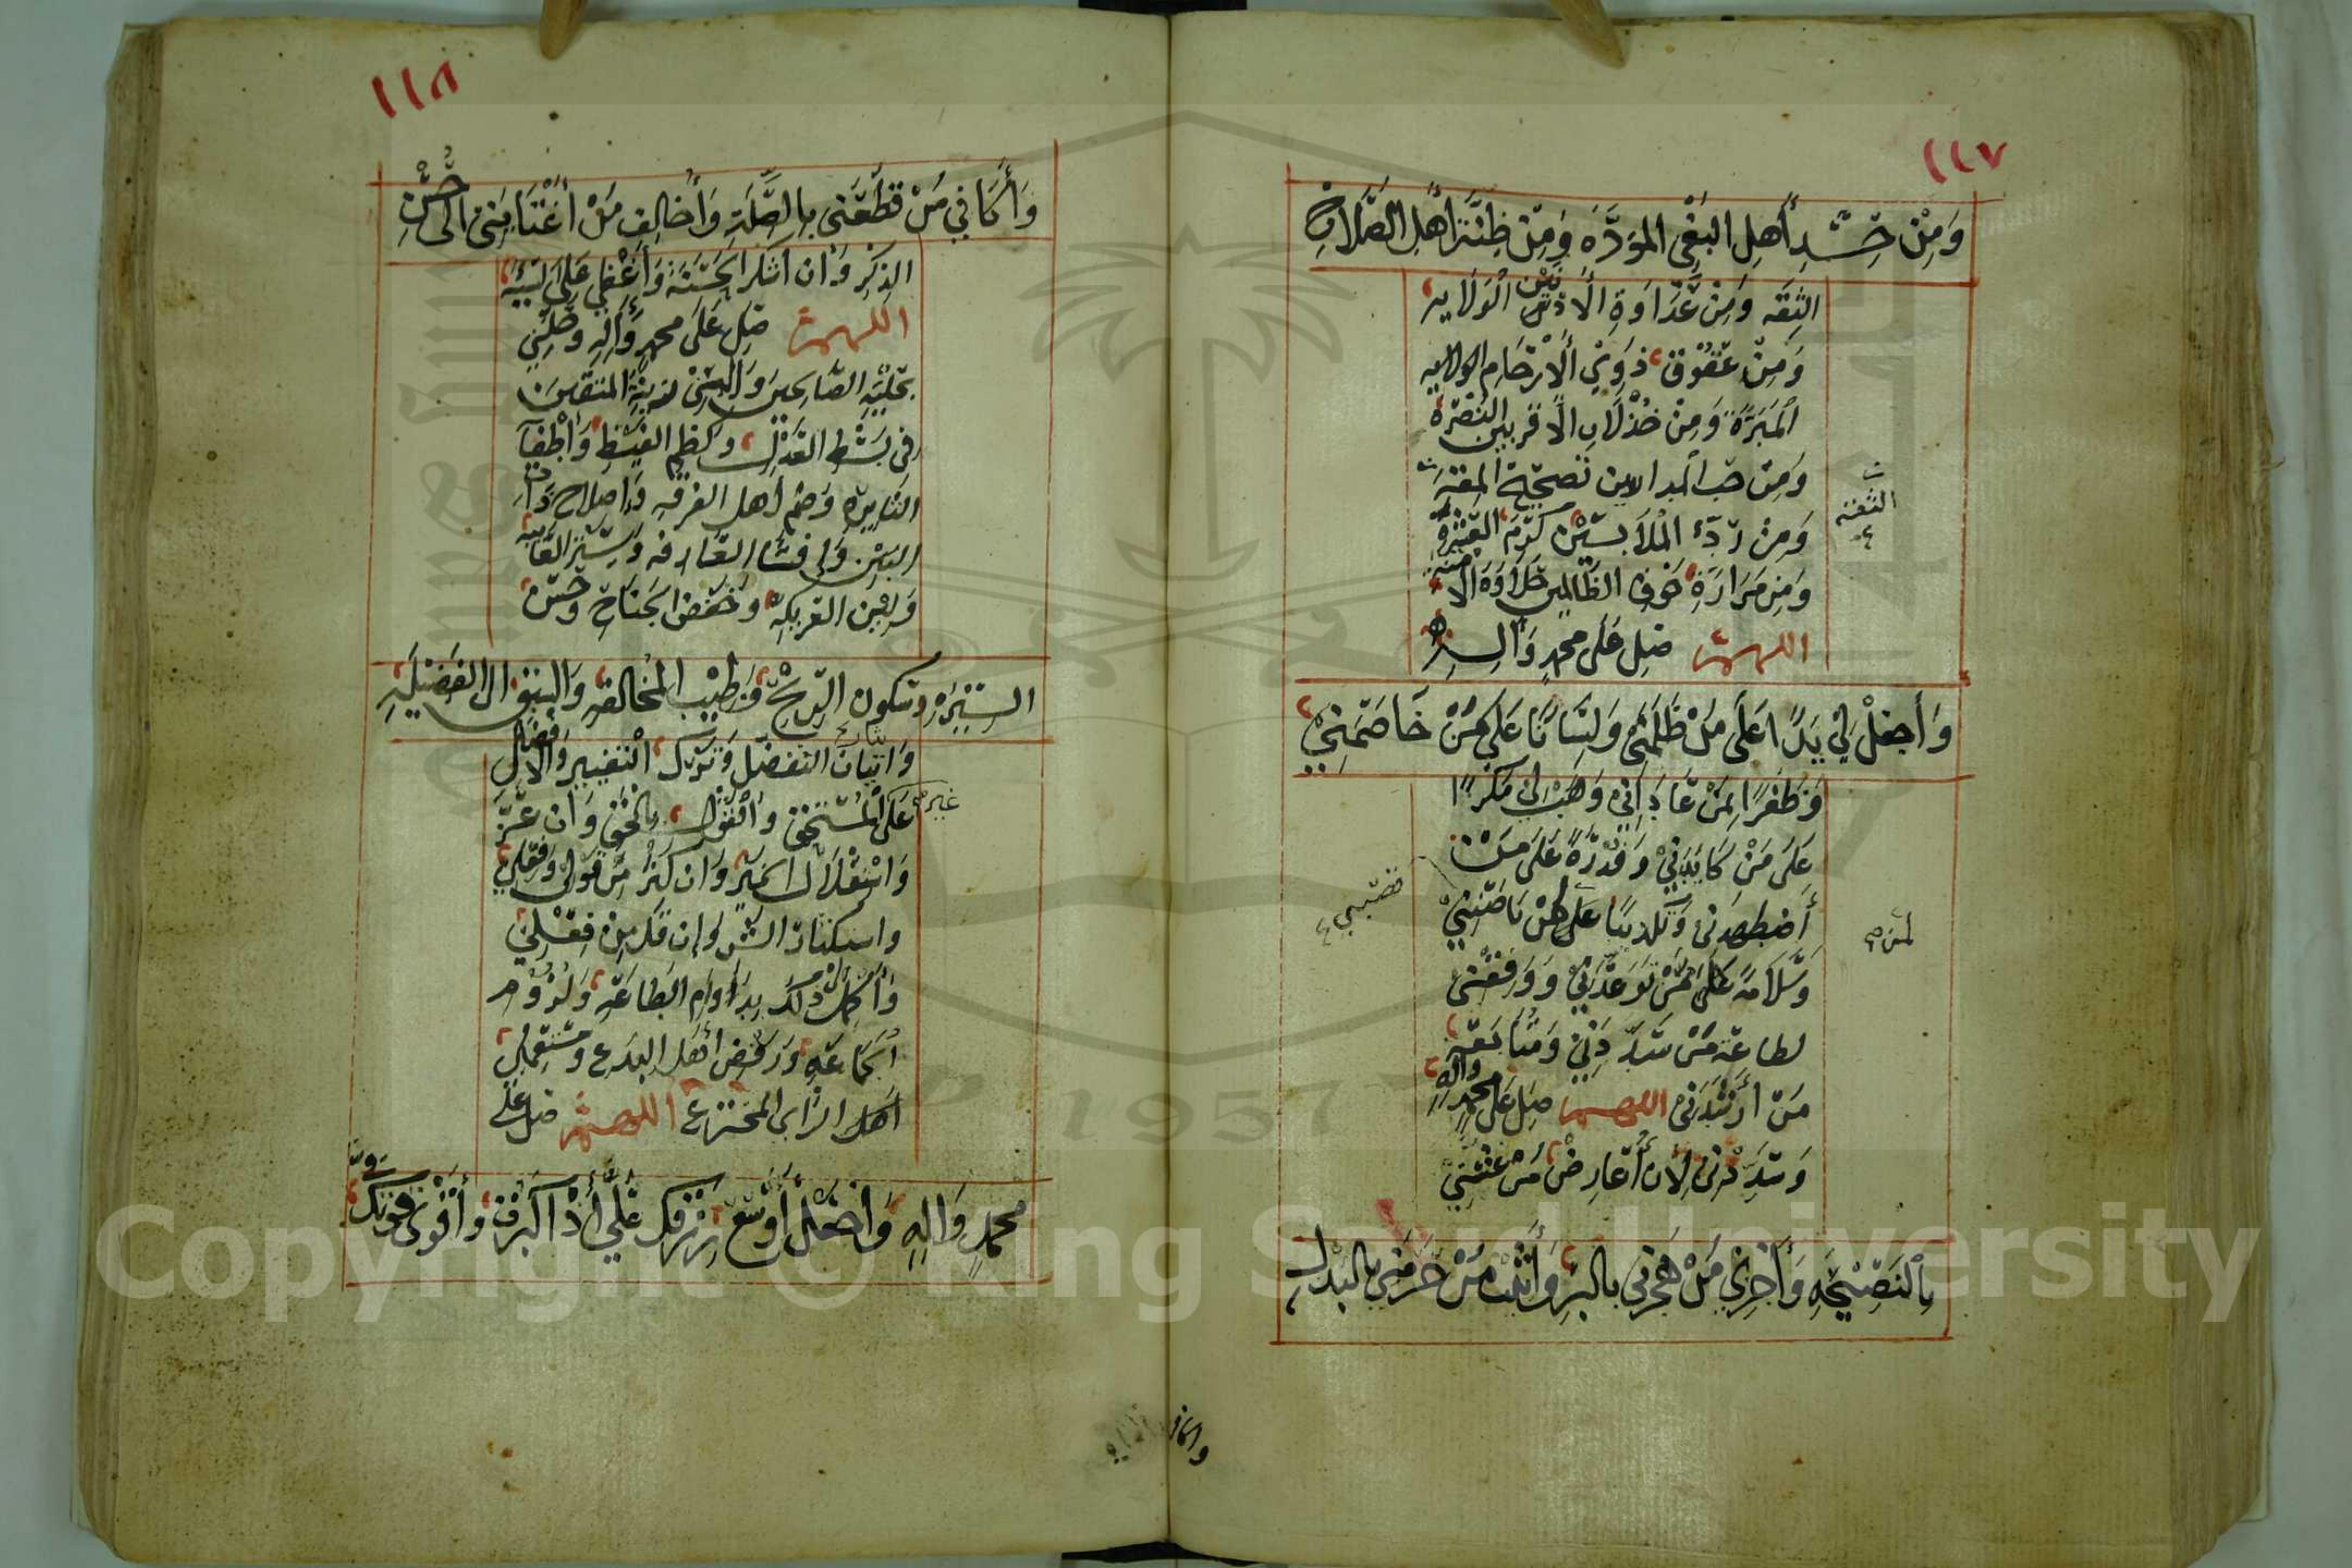 ١١٧
وَمِنْ حَسَدِ أَهلِ البَغْيِ المَوَدَّةَ وَمِنْ ظِنَّةِ أَهْلِ الصَّلَاحِ
الثِقَه وَمِنْ عَدَاوَةِ الأَدنَيْنَ الْوَلايه
وَمِنْ عقُوْقِ ذَوِي الأَرْحَام
المَبَرَّةَ وَمِنْ خُذْلَانِ الأَقربين النُصْرَة
وَمِن حب المدارين تصحيح المقة
الثقة
وَمِنْ رَدِّ الْمُلَابسين كَرَم العِشْرَةِ
وَمِن مَرَارَةِ خَوفِ الظَالمين حَلَاوَةَ الأمنه
اللهم صَلِ عَلَى محمدٍ وَآلِه
وَأجعَلْ لِي يَدًا عَلَى مَنْ ظَلَمَنِي وَلِسَانًا عَلَى مَنْ خَاصَمَنِي
وَظَفَرًا بِمَنْ عَانَدَنِي وَهَبْ لِي مَكْرًا
عَلَى مَنْ كَايَدَنِي وَقُدْرَةً عَلَى مَنْ
أَضطهَدَنِي وَتكذيبًا لمن
قصبني
لمن
وَسَلَامَةً مِمَّنْ تَوَعَّدَنِي وَوَفِقْنِي
لطاعة مَنْ سَدَّدَنِي وَمُتَابَعَةِ
مَنْ أَرْشَدَنِي اللهم صَلِ عَلَى محمدٍ وآله
وَسَدِّدْنِي لِأَن أُعَارِضَ مَنْ غَشَّنِي
بِالنَصِيْحَةِ وَأَجْزِيَ مَنْ هَجَرَنِي بالبِرِ وَأُثِيْبَ مَنْ حَرَمَنِي بالبَذْلِ
١١٨
وَأُكَافِي مَنْ قَطَعَنِي بِالصِّلَةِ وَأُخَالِفَ مَنْ أغْتَابَنِي إلَى حُسْنِ
الذِكْرِ وَأن أشكر الحَسَنَةَ وَأُغْضِي عَلَى السَيِّئَة
اللهم صَلِ عَلَى محمدٍ وَآلِهِ وَحَلِّنِي
بحِلْيَةِ الصَّالِحِينَ وَأَلْبِسْنِي زِيْنَةَ المتقين
في بَسْطِ العَدْلِ وكظم الغَيْظِ وَأطْفَاءِ
النَايِرَةِ وَضَم أهل الفرقه وَإصلاح ذَات
البَيْن وَإفشَاء العَارفه وَسَتْرِ العَايبه
وَلِيْنِ العَرِيكَةِ وَخَفْضِ الجَنَاحِ وحُسْنِ
السِيْرَةِ وَسكون الرِّيْحِ وَطِيْبِ المُخَالقه وَالسَبْقِ إلى الفَضِيْلَةِ
وَإيثَار التفضُّل وَتَرْكِ التَعْيير وَالإفضال
عَلَى غير المُسْتَحِق وَالقَوْلِ بالحَقِ وَإن عَزَّ
وَاسْتقْلَالِ الخَيْرِ وَإن كَثُرَ مِنْ قَوْلِي وَفِعْلِي
وَاستكثارِ الشر وَإن قَلَّ مِنْ فِعْلِي
وَأكْمِلْ ذلكَ بِدَوَامِ الطَاعَةِ وَلُزُوْمِ
الجَمَاعَةِ وَرَفْضِ أَهلِ البِدَع وَمُسْتَعْمِلِي
أهل الرَأي المخترع اللهم صل عَلَى
محمدٍ وَالِهِ وَأجْعَلْ أَوْسَعَ رِزْقِكَ عَلَيَّ إذَا كَبِرْتُ وَأَقْوَى قوتِكَ فِيَّ